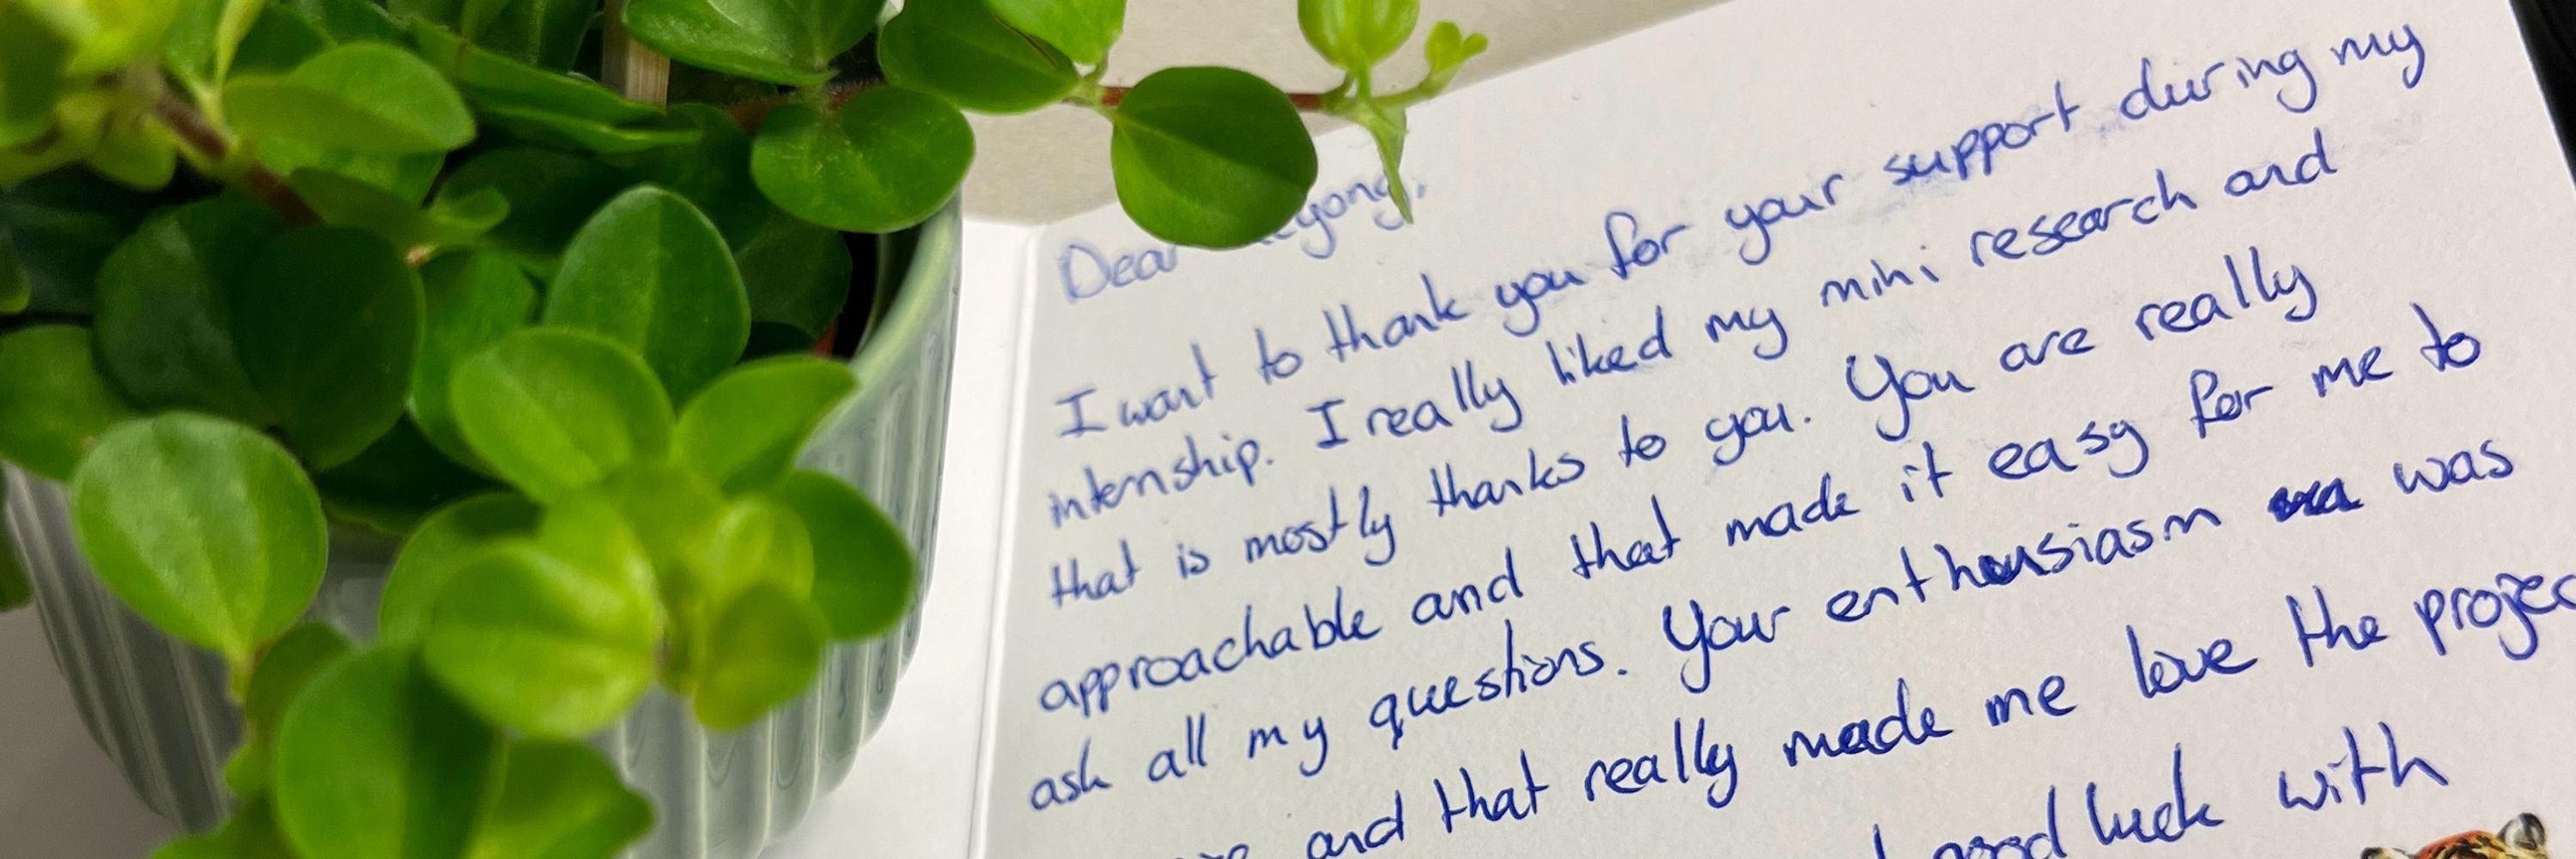 Dear
I want to thank you for your support during my
internship. I really liked my mini research and
that is mostly thanks to you. You are really
approachable and that made it easy for me to
ask all my questions. Your enthousiasm was
and that really made me love the projec
good luck with